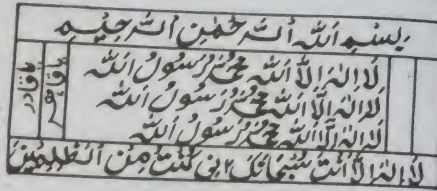 بِسْمِ اللهِ الرَّحْمٰنِ الرَّحِيْمِ
لَا اِلٰهَ اِلَّا اللهُ مُحَمَّدٌ رَسُوْلُ اللهِ
لَا اِلٰهَ اِلَّا اللهُ مُحَمَّدٌ رَسُوْلُ اللهِ
لَا اِلٰهَ اِلَّا اللهُ مُحَمَّدٌ رَسُوْلُ اللهِ
يا قاهر
يا قادر
لَا اِلٰهَ اِلَّا اَنْتَ سُبْحَانَكَ اِنِّى كُنْتُ مِنَ الظّٰلِمِيْنَ